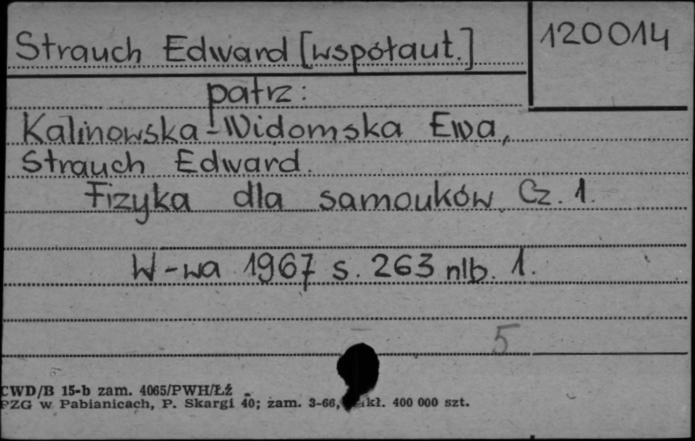 Strauch Edward [współaut.]
120014
patrz:
Kalinowska-Widomska Ewa,
Strauch Edward.
Fizyka dla samouków. Cz. 1.
W-wa 1967 s. 263 nlb. 1.
5
CWD/B 15-b zam. 4065/PWH/Łź
PZG w Pabianicach, P. Skargi 40; zam. 3-66, 400 000 szt.